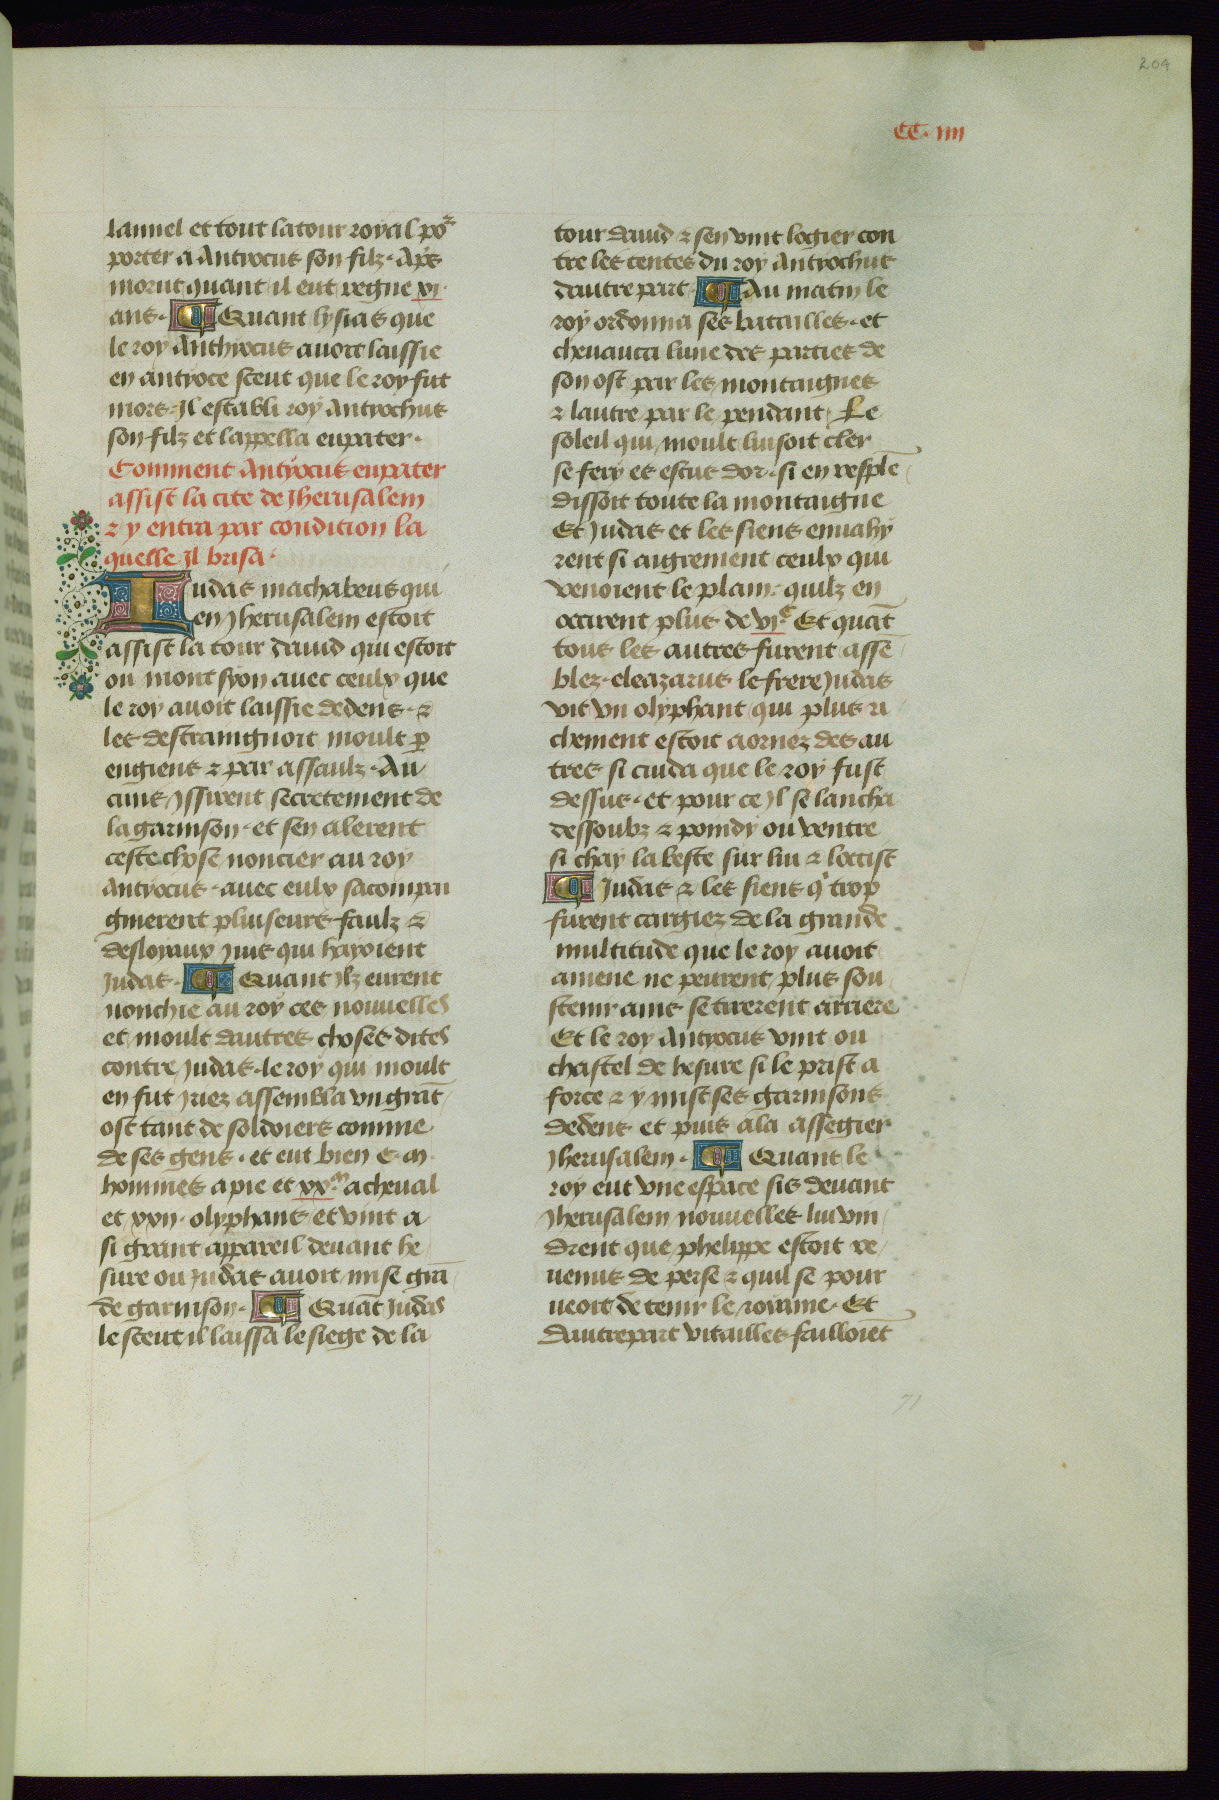 204
CC. iiii
lannel et tout latour royal por
porter a Antyocus son filz. Apres
morut quant il eut regne vi.
ans. Quant lysias que
le roy Anthyocus auoit laissie
en antyoce sceut que le roy fut
mort. Jl establi roy Antyochus
son filz et lappella eupater.
Comment Antyocus eupater
assist la cite de Jherusalem
& y entra par condition la
quelle Jl brisa.
Iudas machabeus qui
en Jherusalem estoit
assist la tour dauid qui estoit
ou mont syon auec ceulx que
le roy auoit laissie dedens. &
les destraingnoit moult p
engiens & par assaulz. Au
cuns Jssirent secretement de
la garnison. et sen alerent
ceste chose noncier au roy
Antyocus. auec eulx sacompai
gnierent pluiseurs faulz &
desloyaux Juis qui hayoient
Judas. Quant Jlz eurent
nonchie au roy ces nouuelles
et moult dautres choses dites
contre Judas. le roy qui moult
en fut Jriez assembla vn grāt
ost tant de soldoiers comme
de ses gens. et eut bien C. m
hommes a pie et xx.m a cheual
et xxii. olyphans et vint a
si grant appareil deuant be
sure ou Judas auoit mise grā
de garnison. Quāt Judas
le sceut il laissa le siege de la
tour dauid & sen vint logier con
tre les tentes du roy Antyochus
dautre part. Au matin le
roy ordonna ses batailles. et
cheuauca lune des parties de
son ost par les montaignes
& lautre par le pendant. Le
soleil qui moult luisoit cler
se fery es escus dor. si en resplē
dissoit toute la montaigne
Et Judas et les siens enuahy
rent si aigrement ceulx qui
venoient le plain. quilz en
occirent plus de vi.c Et quāt
tous les autres furent assē
blez. eleazarus le frere Judas
vit vn olyphant qui plus ri
chement estoit aornez des au
tres. si cuida que le roy fust
dessus. et pour ce Jl se lancha
dessoubz & poindy ou ventre
si chay la beste sur lui & loccist
Judas & les siens q trop
furent cargiez de la grande
multitude que le roy auoit
amene ne peurent plus sou
stenir ains se tirerent arriere
Et le roy Antyocus vint ou
chastel de besure si le prist a
force & y mist ses garnisons
dedens et puis ala assegier
Jherusalem. Quant le
roy eut vne espace sis deuant
Jherusalem nouuelles lui vin
drent que phelippe estoit re
uenus de perse & quil se pour
ueoit de tenir le royame. Et
dautrepart vitailles failloiēt
71